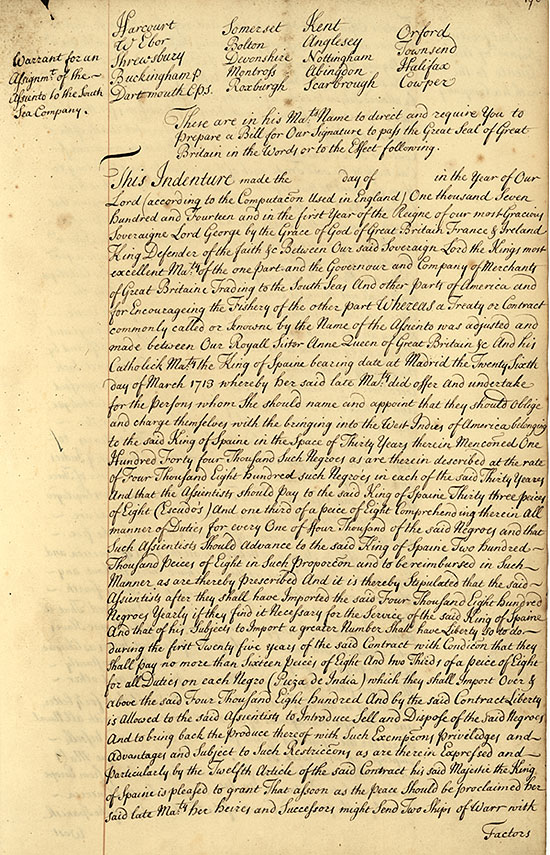 Harcourt Somerset Kent Orford
W Ebor Bolton Anglesey Townsend
Shrewsbury Devonshire Nottingham Halifax
Buckingham P Montross Abingdon Cowper
Dartmouth C.P.S. Roxburgh Scarbrough
Warrant for an
Assignmt. of the
Assiento to the South
Sea Company.
These are in his Mats Name to direct and require You to
prepare a Bill for Our Signature to pass the Great Seal of Great
Britain in the Words or to the Effect following.
This Indenture made the day of in the Year of Our
Lord (according to the Computacon Used in England) One thousand Seven
Hundred and Fourteen and in the first Year of the Reigne of our most Gracious
Soveraigne Lord George by the Grace of God of Great Britain France & Ireland
King Defender of the faith &c Between Our said Soveraign Lord the Kings most
excellent Maty of the one part and the Governour and Company of Merchants
of Great Britaine Trading to the South Seas And other Parts of America and
for Encourageing the Fishery of the other part Whereas a Treaty or Contract
commonly called or knowne by the Name of the Assiento was adjusted and
made between Our Royall Sister Anne Queen of Great Britaine &c And his
Catholick Maty the King of Spaine bearing date at Madrid the Twenty Sixth
day of March 1713 whereby her said late Maty did offer And undertake
for the Persons whom She should name and appoint that they should Oblige
and charge themselves with the bringing into the West Indies of America belonging
to the said King of Spaine in the Space of Thirty Years therein Menconed One
Hundred Forty four Thousand Such Negroes as are therein described at the rate
of Four Thousand Eight Hundred such Negroes in each of the said Thirty Years
And that the Assientists should Pay to the said King of Spaine Thirty three peices
of Eight (Escudo's) And one third of a peice of Eight Comprehending therein All
manner of Duties for every One of Four Thousand of the said Negroes and that
Such Assientists Should Advance to the said King of Spaine Two Hundred
Thousand Peices of Eight in Such Proporcon and to be reimbursed in Such
Manner as are thereby Prescribed And it is thereby Stipulated that the said
Assientists after they shall have Imported the said Four Thousand Eight Hundred
Negroes Yearly if they find it Necessary for the Service of the said King of Spaine
And that of his Subjects to Import a greater Number Shall have Liberty so to do
during the first Twenty five Years of the said Contract with Condicon that they
shall pay no more than Sixteen Peices of Eight And two Thirds of a peice of Eight
for all Duties on each Negro (Pieza de India) which they shall Import Over &
above the said Four Thousand Eight Hundred And by the said Contract Liberty
is Allowed to the said Assientists to Introduce Sell and Dispose of the said Negroes
And to bring back the Produce thereof with Such Exempcons Priviledges and
Advantages and Subject to Such Restriccons as are therein Expressed and
Particularly by the Twelfth Article of the said Contract his said Majestie the King
of Spaine is pleased to grant That assoon as the Peace Should be proclaimed her
said late Maty her Heires and Successors might Send Two Ships of Warr with
Factors